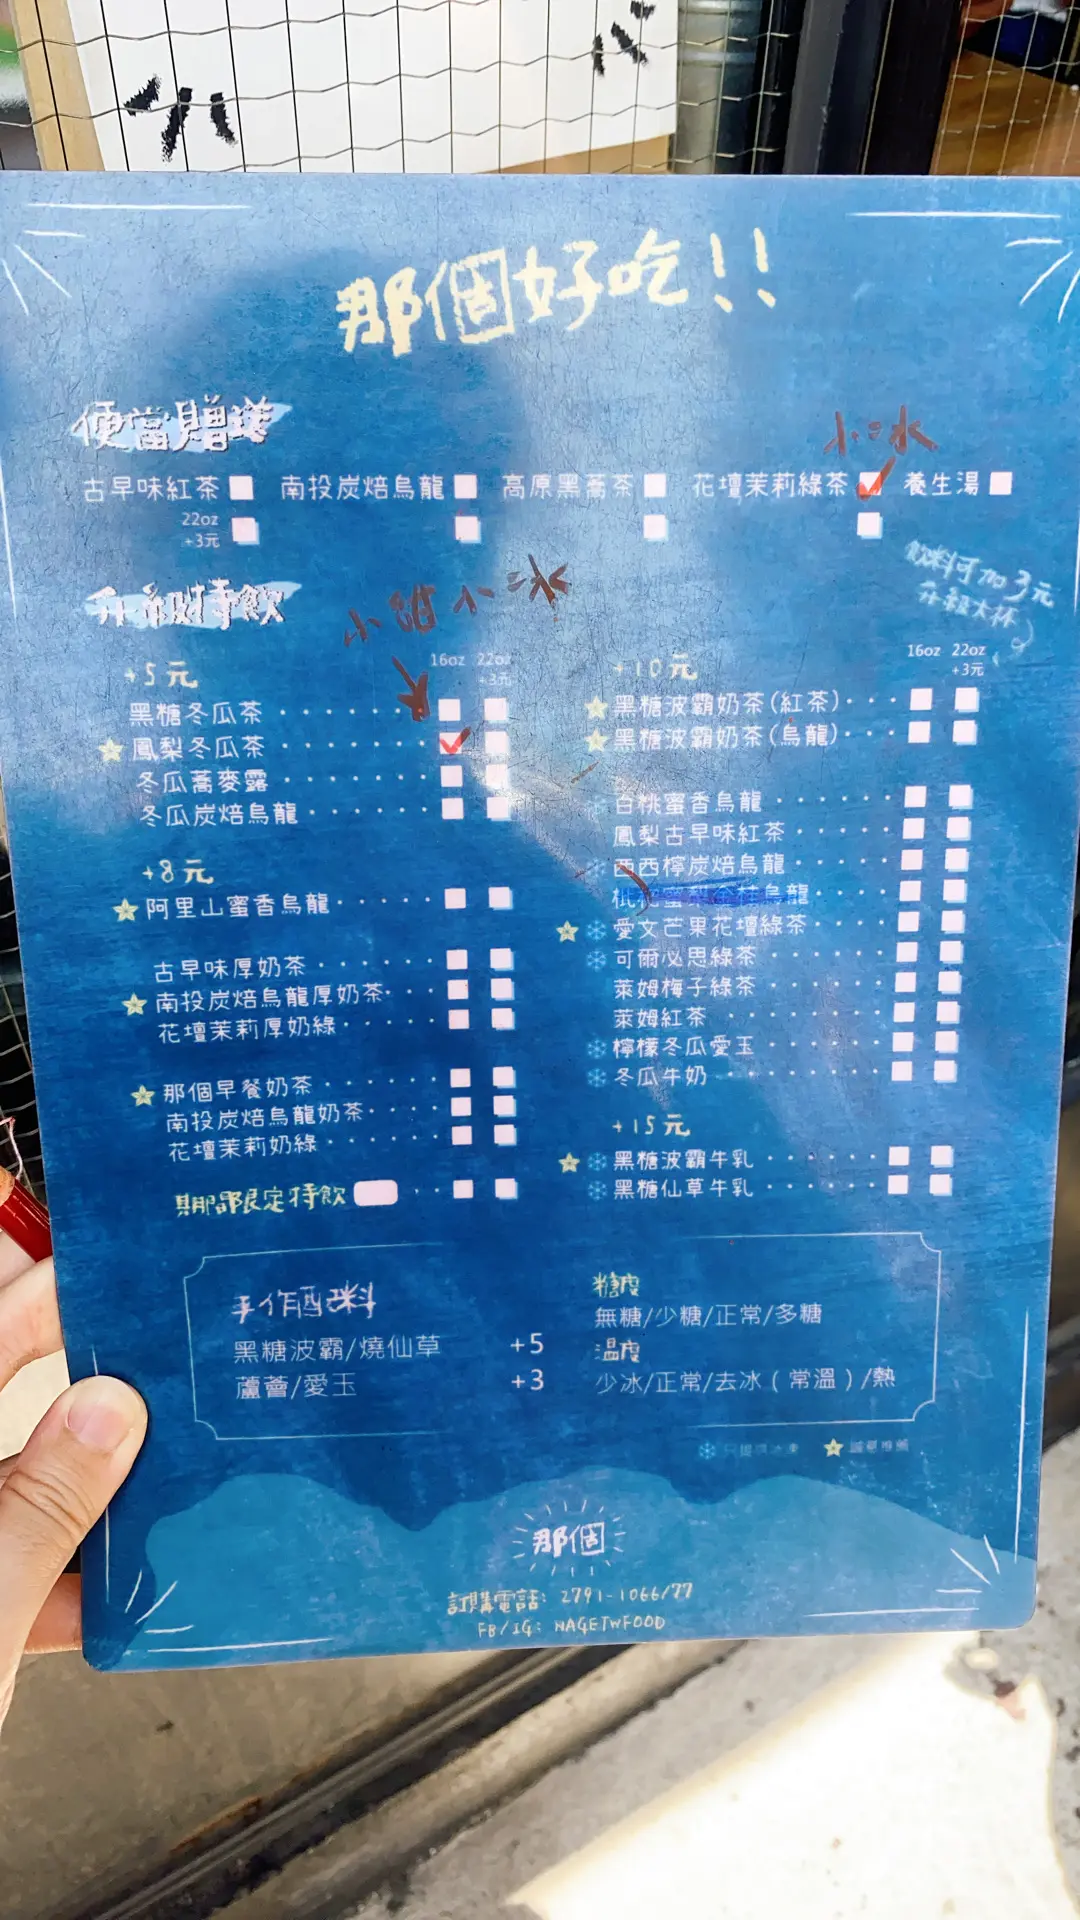 那個好吃!!
便當贈送
小冰
古早味紅茶 南投炭焙烏龍 高原黑蕎茶 花壇茉莉綠茶 養生湯
22oz
+3元
飲料可加3元
升級大杯
升級特飲
小甜 小冰
+5元 16oz 22oz
+3元
黑糖冬瓜茶
鳳梨冬瓜茶
冬瓜蕎麥露
冬瓜炭焙烏龍
+8元
阿里山蜜香烏龍
古早味厚奶茶
南投炭焙烏龍厚奶茶
花壇茉莉厚奶綠
那個早餐奶茶
南投炭焙烏龍奶茶
花壇茉莉奶綠
期間限定特飲
+10元 16oz 22oz
+3元
黑糖波霸奶茶(紅茶)
黑糖波霸奶茶(烏龍)
白桃蜜香烏龍
鳳梨古早味紅茶
西西檸炭焙烏龍
烏龍
愛文芒果花壇綠茶
可爾必思綠茶
萊姆梅子綠茶
萊姆紅茶
檸檬冬瓜愛玉
冬瓜牛奶
+15元
黑糖波霸牛乳
黑糖仙草牛乳
手作配料
黑糖波霸/燒仙草 +5
蘆薈/愛玉 +3
糖度
無糖/少糖/正常/多糖
溫度
少冰/正常/去冰(常溫)/熱
誠意推薦
那個
訂購電話: 2791-1066/77
FB/IG: NAGETWFOOD